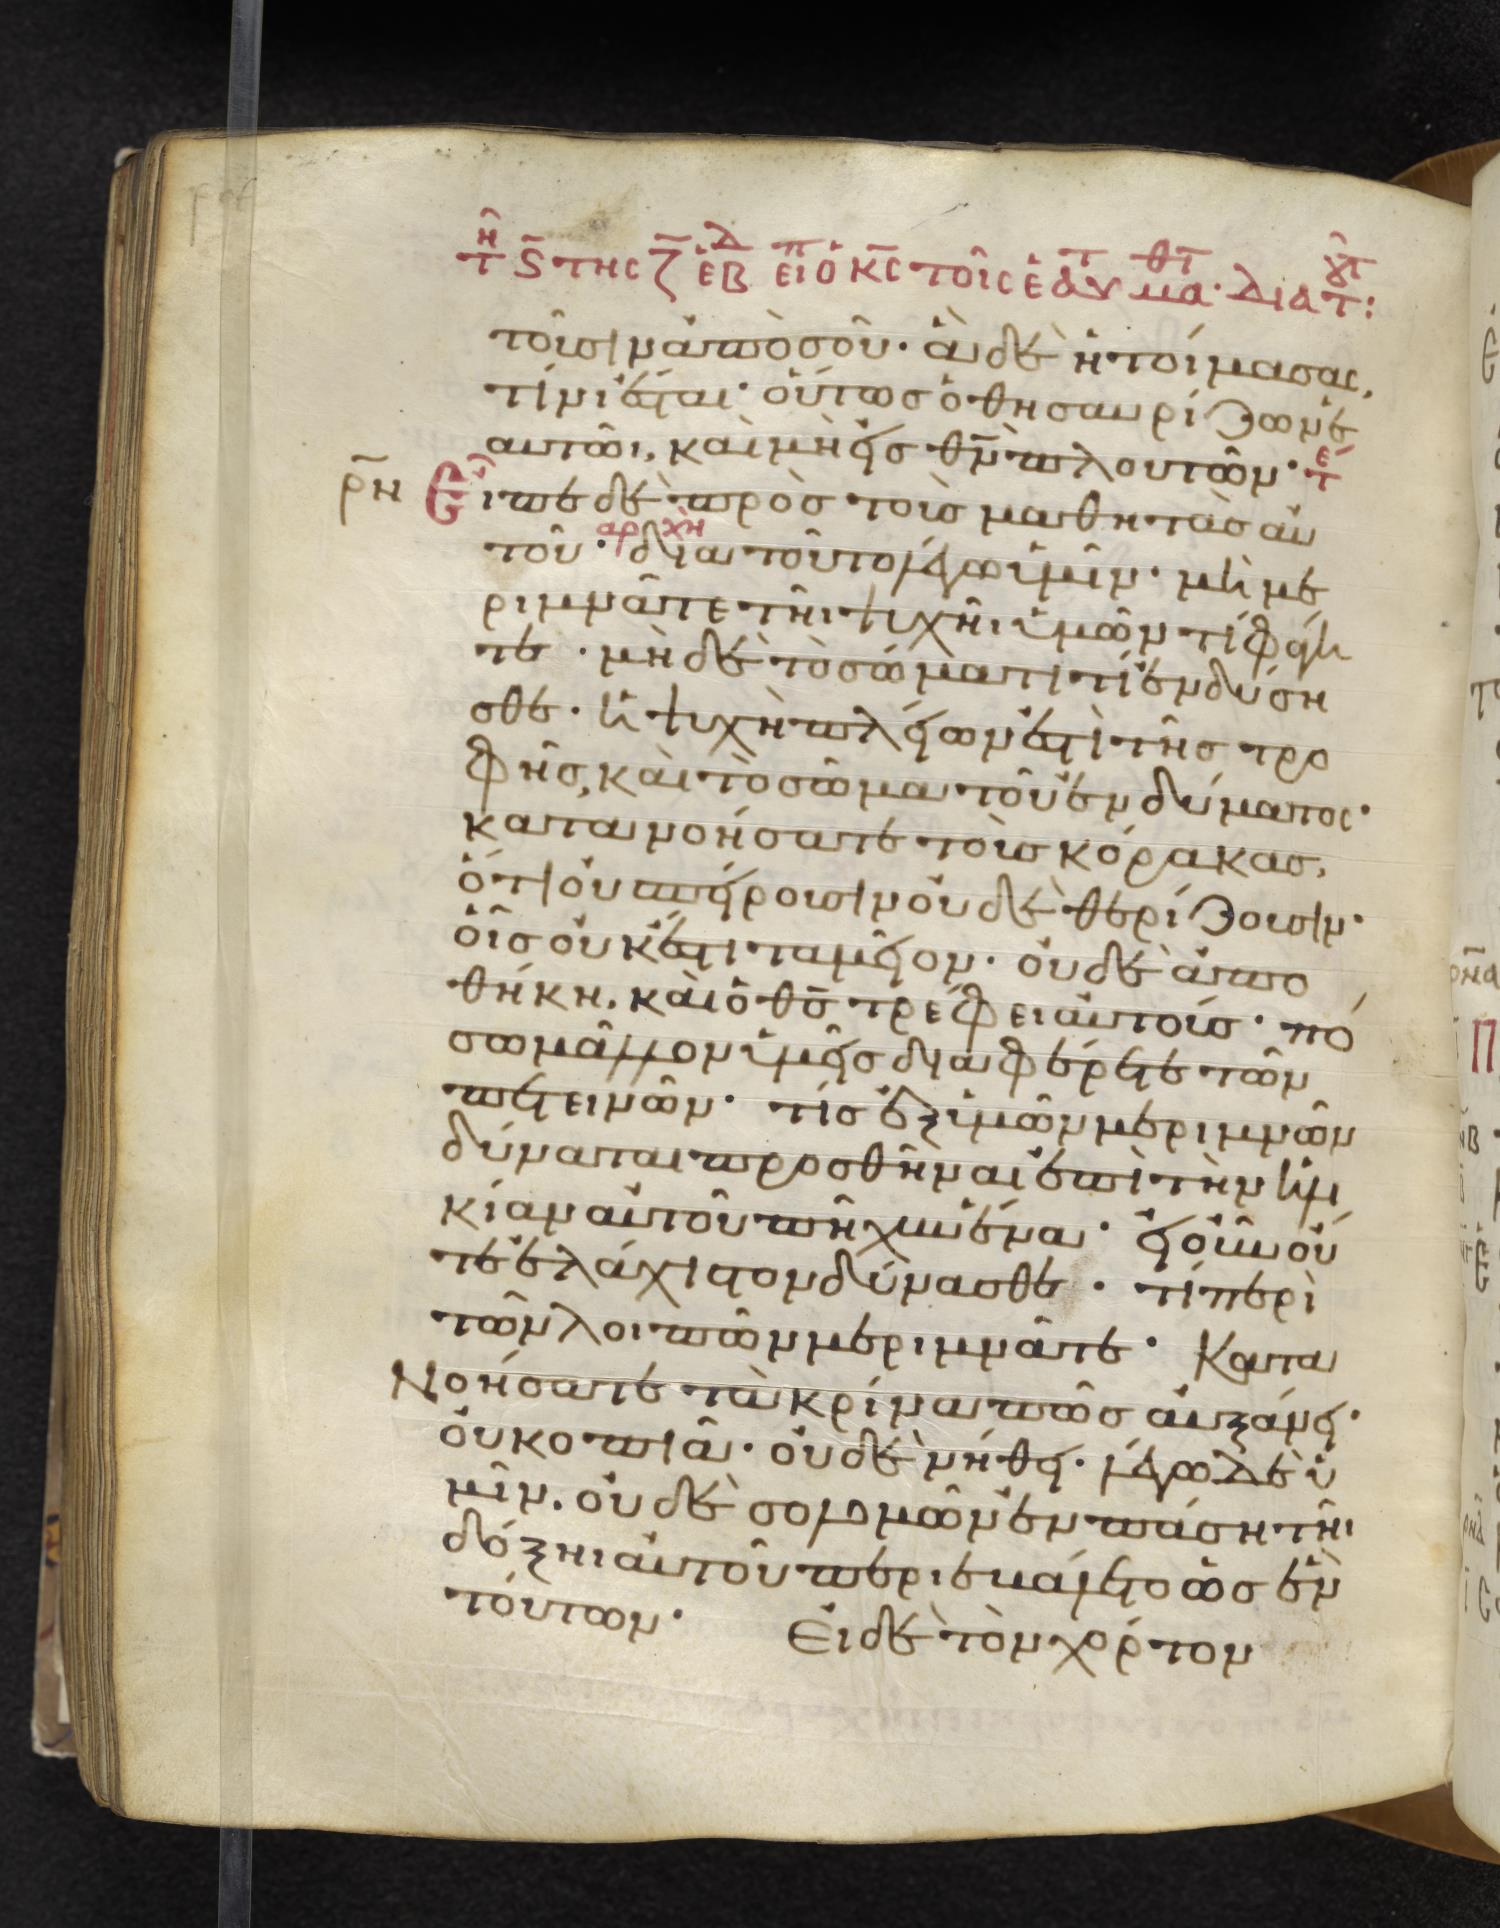 τῆ ϛ̄ τῆς ζ̄ ἑβδ εἶπ ὁ κ̄ς τοῖς ἑαυτ μαθτ· διὰ τοῦτ:
τοῦσιν ἀπὸ σοῦ· ἃ δὲ ἡτοίμασας,
τίνι ἔσται· οὕτως ὁ θησαυρίζων ἑ
αυτῶι, καὶ μὴ εἰς θ̄ν πλουτῶν· τε
ρ̄ν̄ Εἶπε δὲ πρὸς τοὺς μαθητὰς αὐ
τοῦ· αρχη διατοῦτο λέγω ὑμῖν· μὴ με
ριμνᾶτε τῆι ψυχῆι ὑμῶν τί φάγη
τε· μὴ δὲ τὸ σώματι τί ἐνδύση
σθε· ἡ ψυχὴ πλεῖων ἐστὶ τῆς τρο
φῆς, καὶ τὸ σῶμα τοῦ ἐνδύματος·
κατανοήσατε τοὺς κόρακας,
ὅτι οὐ σπείρουσιν οὐδὲ θερίζουσιν·
οἷς οὐκ ἔστι ταμεῖον· οὐδὲ ἀπο
θήκη. καὶ ὁ θ̄ς τρέφει αὐτούς· πό
σω μᾶλλον ὑμεῖς διαφέρετε τῶν
πετεινῶν· τίς ἐξ ὑμῶν μεριμνῶν
δύναται προσθῆναι ἐπὶ τὴν ἡλι
κίαν αὐτοῦ πῆχυν ἕνα· εἰ οὖν οὔ
τε ἐλάχιστον δύνασθε· τί περὶ
τῶν λοιπῶν μεριμνᾶτε· Κατα
Νοήσατε τὰ κρίνα πῶς αὐξάνει·
οὐ κοπιᾶ· οὐδὲ νήθει· λέγω δὲ ὑ
μῖν. οὐδὲ σολομῶν ἐν πάση τῆι
δόξηι αὐτοῦ περιεβάλετο ὡς ἓν
τούτων· Εἰ δὲ τὸν χόρτον